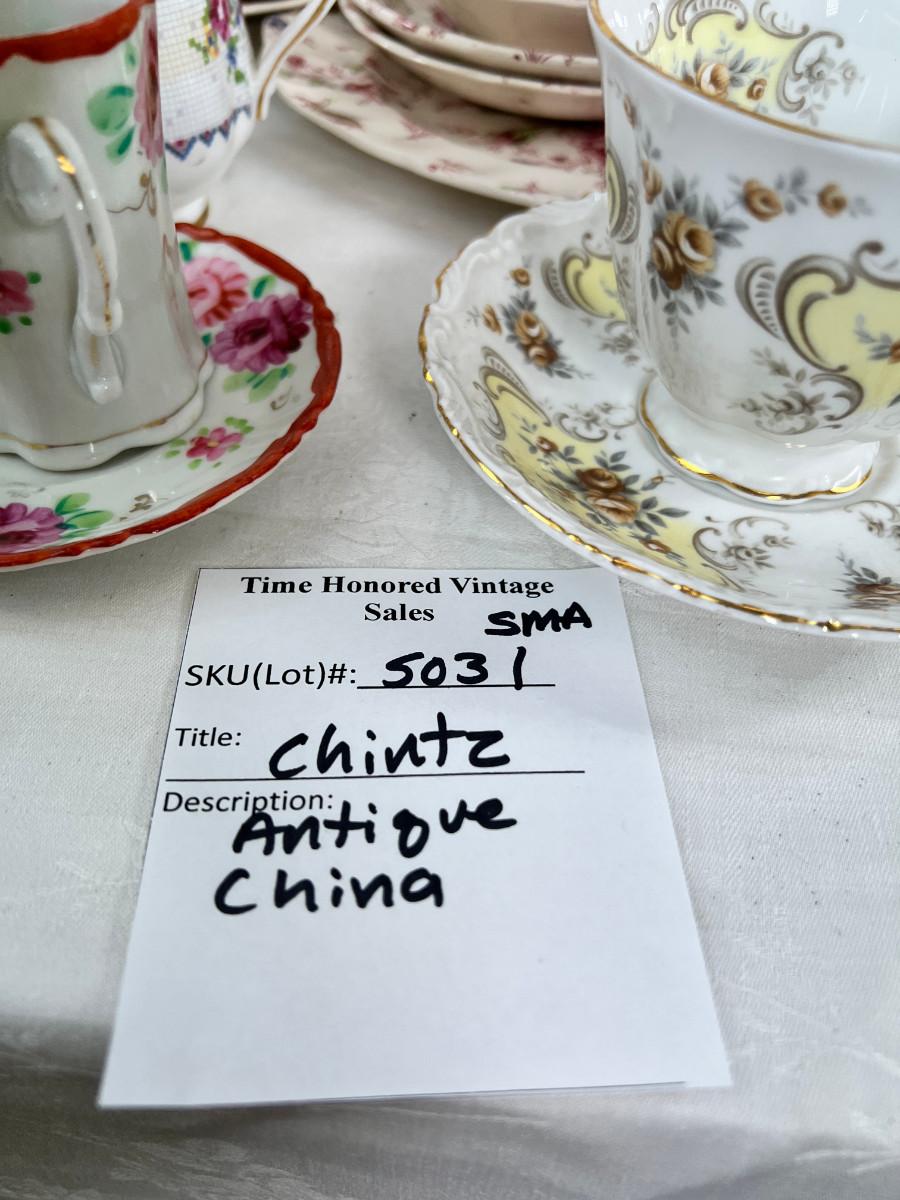 Time Honored Vintage
Sales
SMA
SKU(Lot)#: 5031
Title: Chintz
Description:
Antique
China